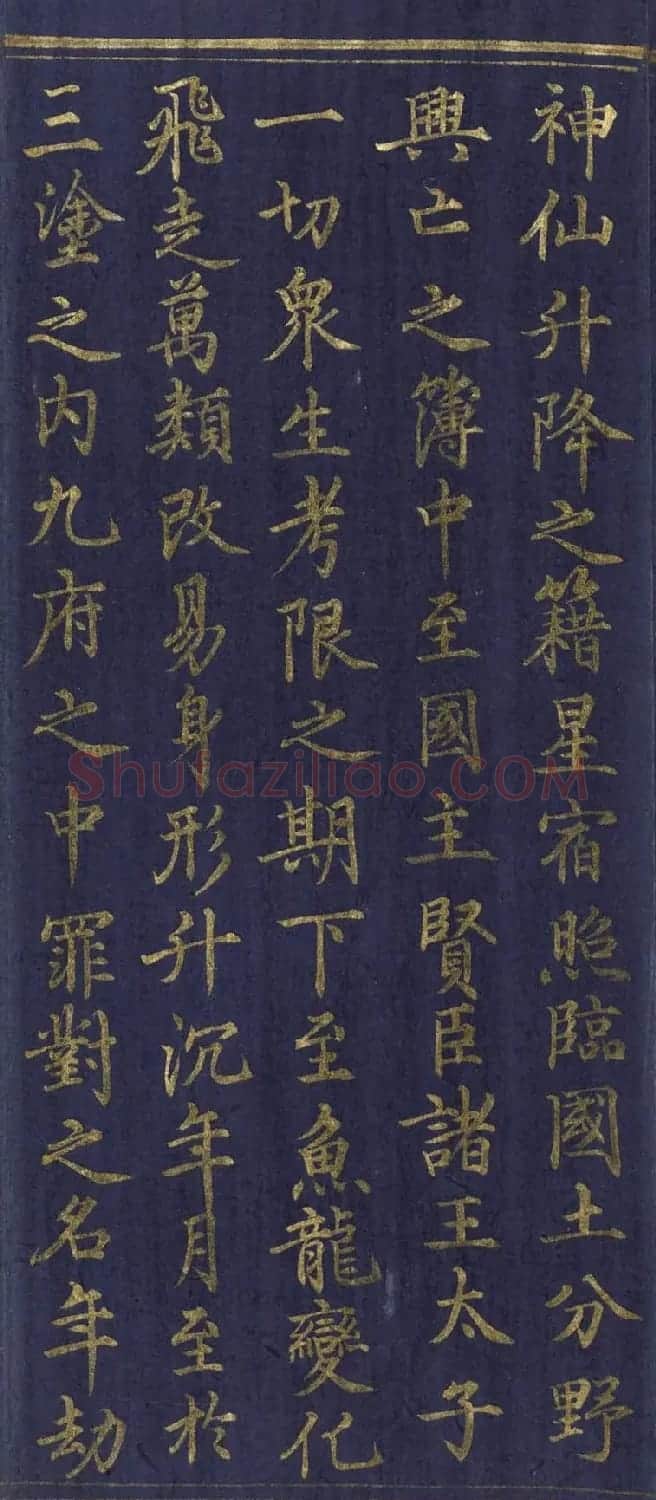 神仙升降之籍星宿照臨國土分野
興亡之簿中至國主賢臣諸王太子
一切眾生考限之期下至魚龍變化
飛走萬類改易身形升沉年月至於
三塗之內九府之中罪對之名年劫
Shufaziliao.COM